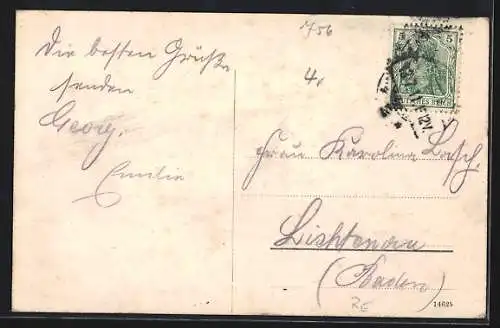 756
4.
Die besten Grüße
senden
Georg.
Emilie
5 5
DEUTSCHES REICH
Frau Karolina
Lichtenau
(Baden)
14625